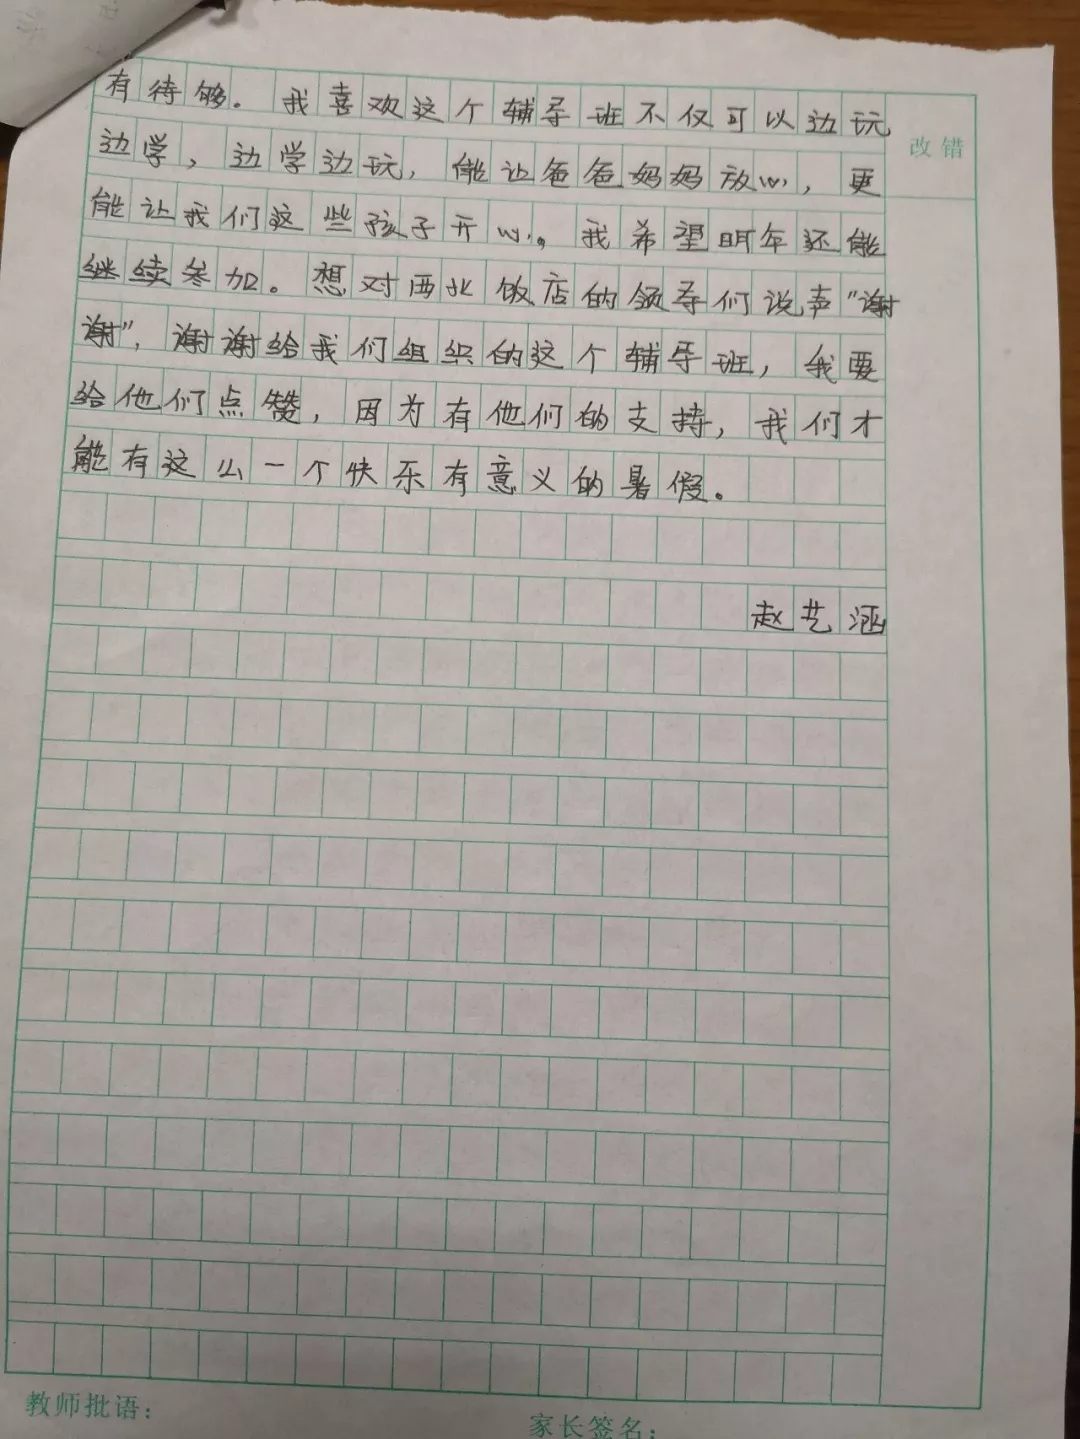 有待够。我喜欢这个辅导班不仅可以边玩
改错
边学，边学边玩，能让爸爸妈妈放心，更
能让我们这些孩子开心。我希望明年还能
继续参加。想对西北饭店的领导们说声“谢
谢”，谢谢给我们组织的这个辅导班，我要
给他们点赞，因为有他们的支持，我们才
能有这么一个快乐有意义的暑假。
赵艺涵
教师批语：
家长签名：